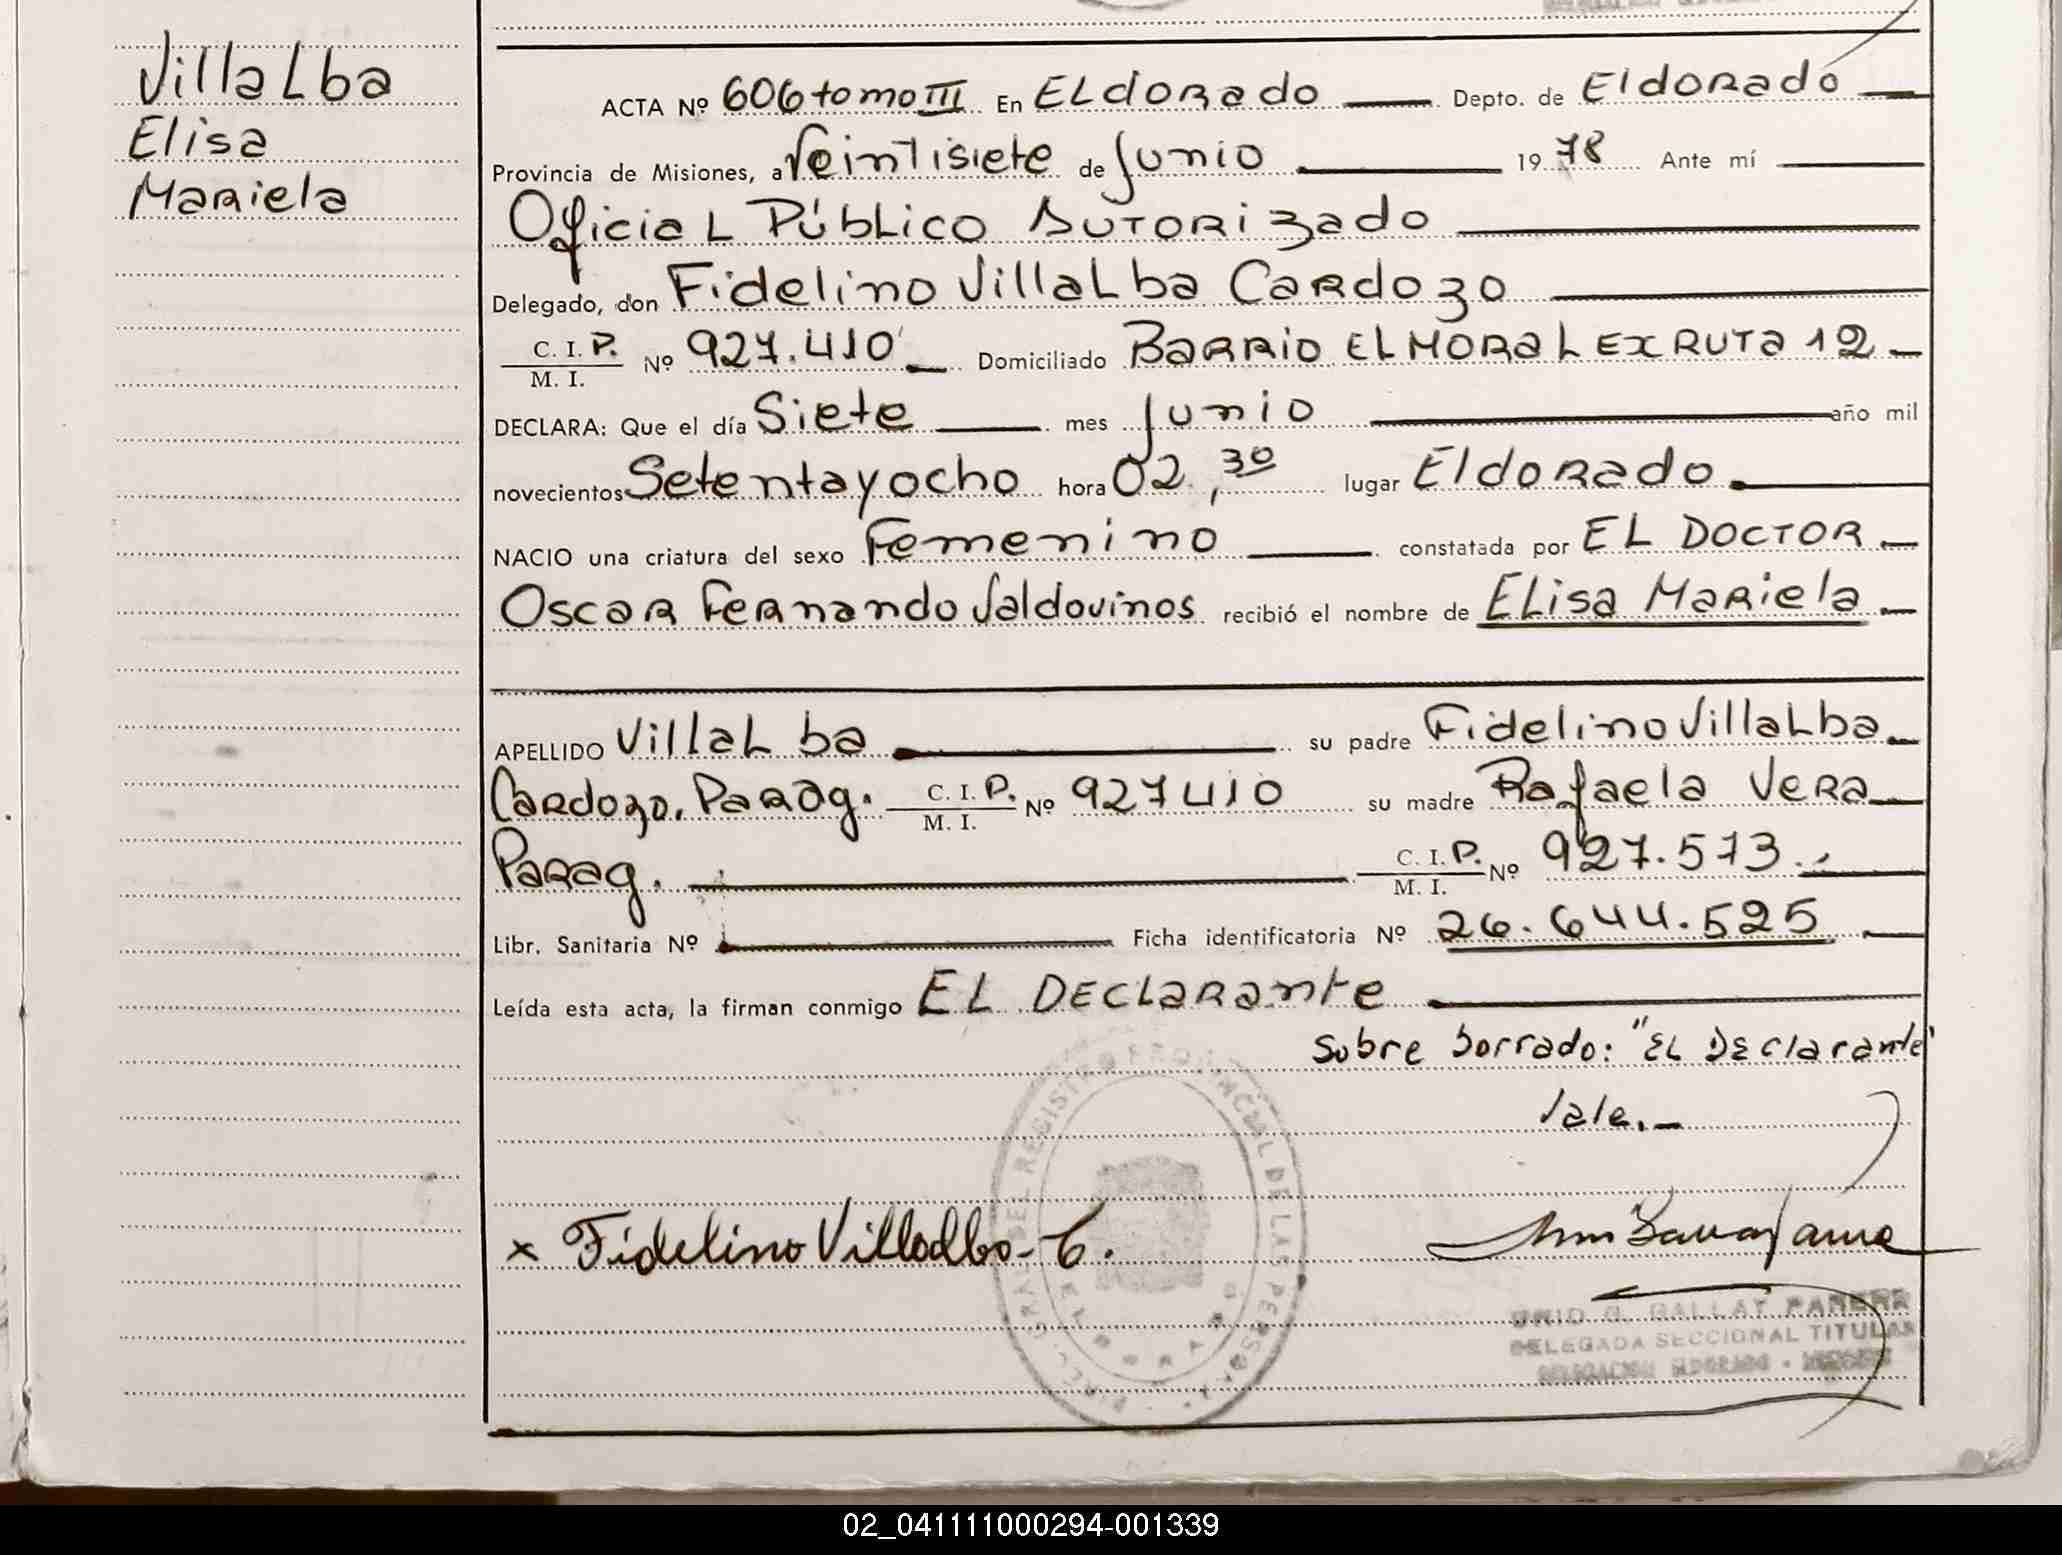 Villalba
Elisa
Mariela
ACTA Nº 606 tomo III En Eldorado Depto. de Eldorado
Provincia de Misiones, a Veintisiete de Junio 1978 Ante mí
Oficial Público Autorizado
Delegado, don Fidelino Villalba Cardozo
C. I. P. M. I. Nº 927.410 Domiciliado Barrio El Moral Ex Ruta 12
DECLARA: Que el día Siete mes Junio año mil
novecientos Setenta y ocho hora 02,30 lugar Eldorado
NACIO una criatura del sexo Femenino constatada por EL DOCTOR
Oscar Fernando Valdovinos recibió el nombre de Elisa Mariela
APELLIDO Villalba su padre Fidelino Villalba
Cardozo, Parag. C. I. P. M. I. Nº 927410 su madre Rafaela Vera
Parag. C. I. P. M. I. Nº 927.573
Libr. Sanitaria Nº Ficha identificatoria Nº 26.644.525
Leída esta acta, la firman conmigo EL DECLARANTE
Sobre borrado: "El Declarante"
Vale.
x Fidelino Villalba C.
DELEGADA SECCIONAL TITULAR
02_041111000294-001339